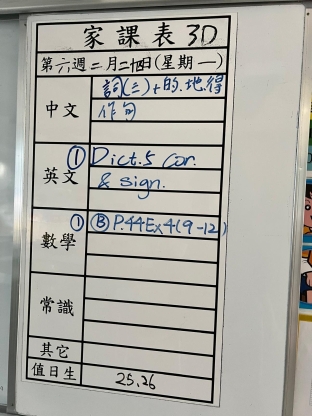 家課表 3D
第六週二月二十四日(星期一)
中文 詞(三)+的.地.得
作句
英文 ① Dict.5 cor.
& sign.
數學 ① Ⓑ P.44Ex4(9-12)
常識
其它
值日生 25,26